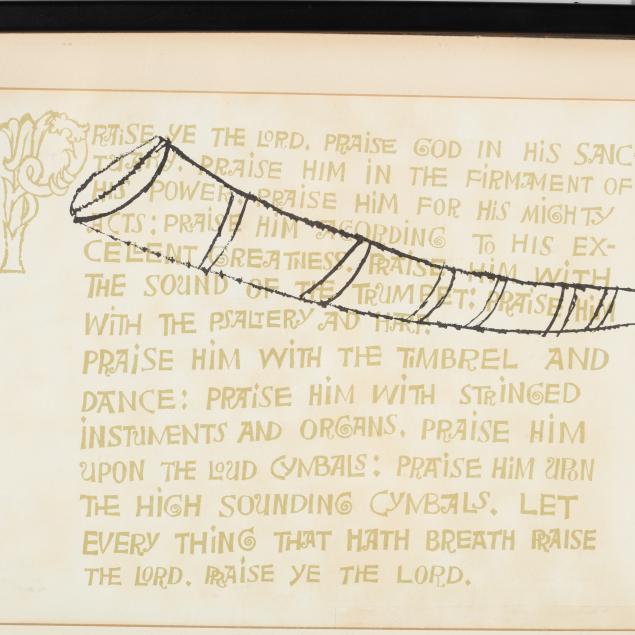 PRAISE YE THE LORD. PRAISE GOD IN HIS SANC
TUARY. PRAISE HIM IN THE FIRMAMENT OF
HIS POWER. PRAISE HIM FOR HIS MIGHTY
ACTS: PRAISE HIM ACORDING TO HIS EX-
CELLENT GREATNESS. PRAISE HIM WITH
THE SOUND OF THE TRUMPET: PRAISE HIM
WITH THE PSALTERY AND HARP.
PRAISE HIM WITH THE TIMBREL AND
DANCE: PRAISE HIM WITH STRINGED
INSTUMENTS AND ORGANS. PRAISE HIM
UPON THE LOUD CYMBALS: PRAISE HIM UPON
THE HIGH SOUNDING CYMBALS. LET
EVERY THING THAT HATH BREATH PRAISE
THE LORD. PRAISE YE THE LORD.